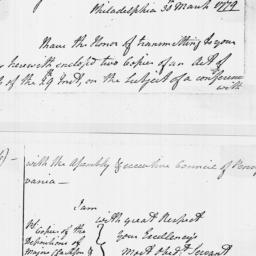 Philadelphia 30th March 1779
have the Honor of transmitting to your
herewith enclosed two Copies of an Act of
of the 29 Inst, on the Subject of a conference
with
with the Assembly & executive Council of Penn
vania —
I am
with great Respect
Your Excellency's
Most Obedt Servant
Copies of the
Depositions of
Major Clarkson &